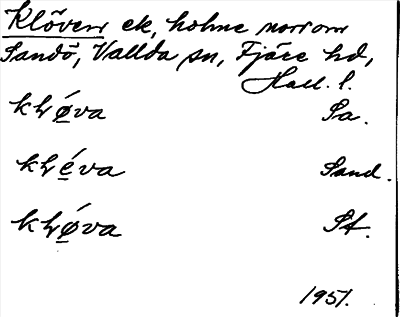 Klöven ek, holme norr om
Sandö, Vallda sn, Fjäre hd,
Hall. l.
kḷǿ̱va Sa.
kḷé̱va Sand.
kḷǿ̱va St.
1951.